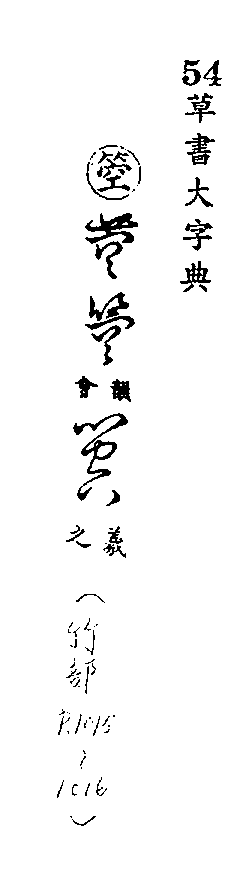 54草書大字典
箜
韻會
羲之
(竹部
P.1015
~
1016)